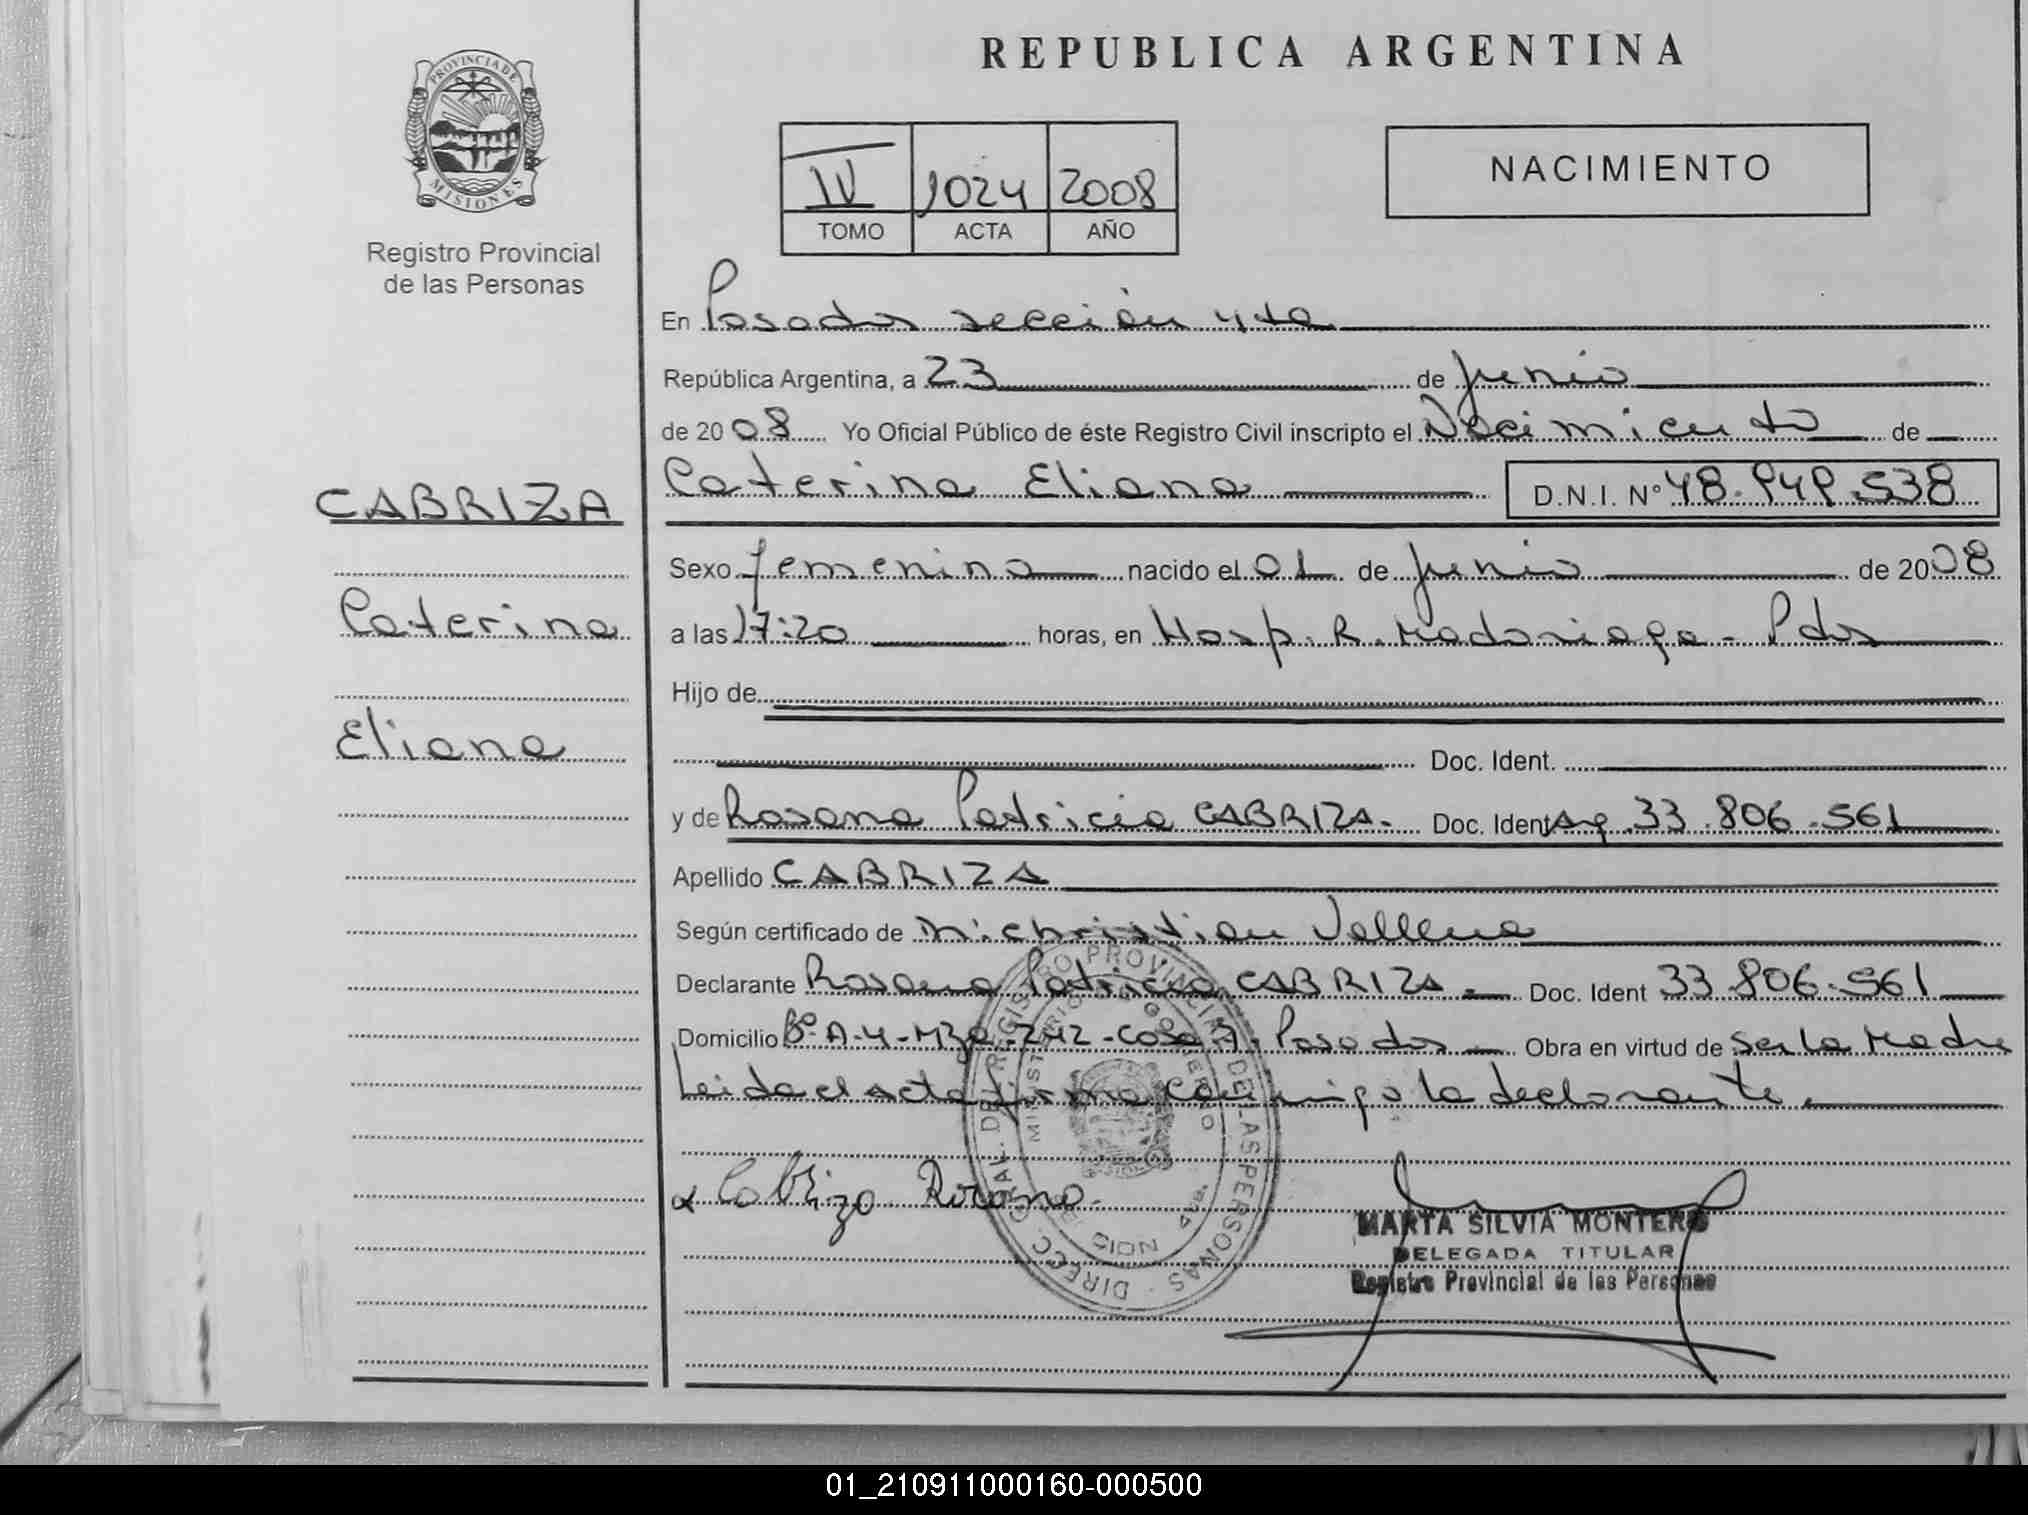 REPUBLICA ARGENTINA
PROVINCIA DE
MISIONES
Registro Provincial
de las Personas
IV 1024 2008
TOMO ACTA AÑO
NACIMIENTO
En Posadas sección 4ta
República Argentina, a 23 de junio
de 2008 Yo Oficial Público de éste Registro Civil inscripto el Nacimiento de
CABRIZA
Caterina Eliana D.N.I. Nº 48.949.538
Sexo femenino nacido el 01 de junio de 2008
Caterina
a las 17:20 horas, en Hosp. R. Madariaga - Pdas
Hijo de
Eliana
Doc. Ident.
y de Rosana Patricia CABRIZA. Doc. Ident Arg 33.806.561
Apellido CABRIZA
Según certificado de christian
Declarante Rosana Patricia CABRIZA. Doc. Ident 33.806.561
Domicilio Bº A-4-Mza-242-Casa 7. Posadas Obra en virtud de ser la Madre
Leida el acta firma conmigo la declarante.
Cabriza Rosana.
DIRECC. GRAL. DEL REGISTRO PROVINCIAL DE LAS PERSONAS
MINISTERIO DE GOBIERNO
MARTA SILVIA MONTERO
DELEGADA TITULAR
Registro Provincial de las Personas
01_210911000160-000500